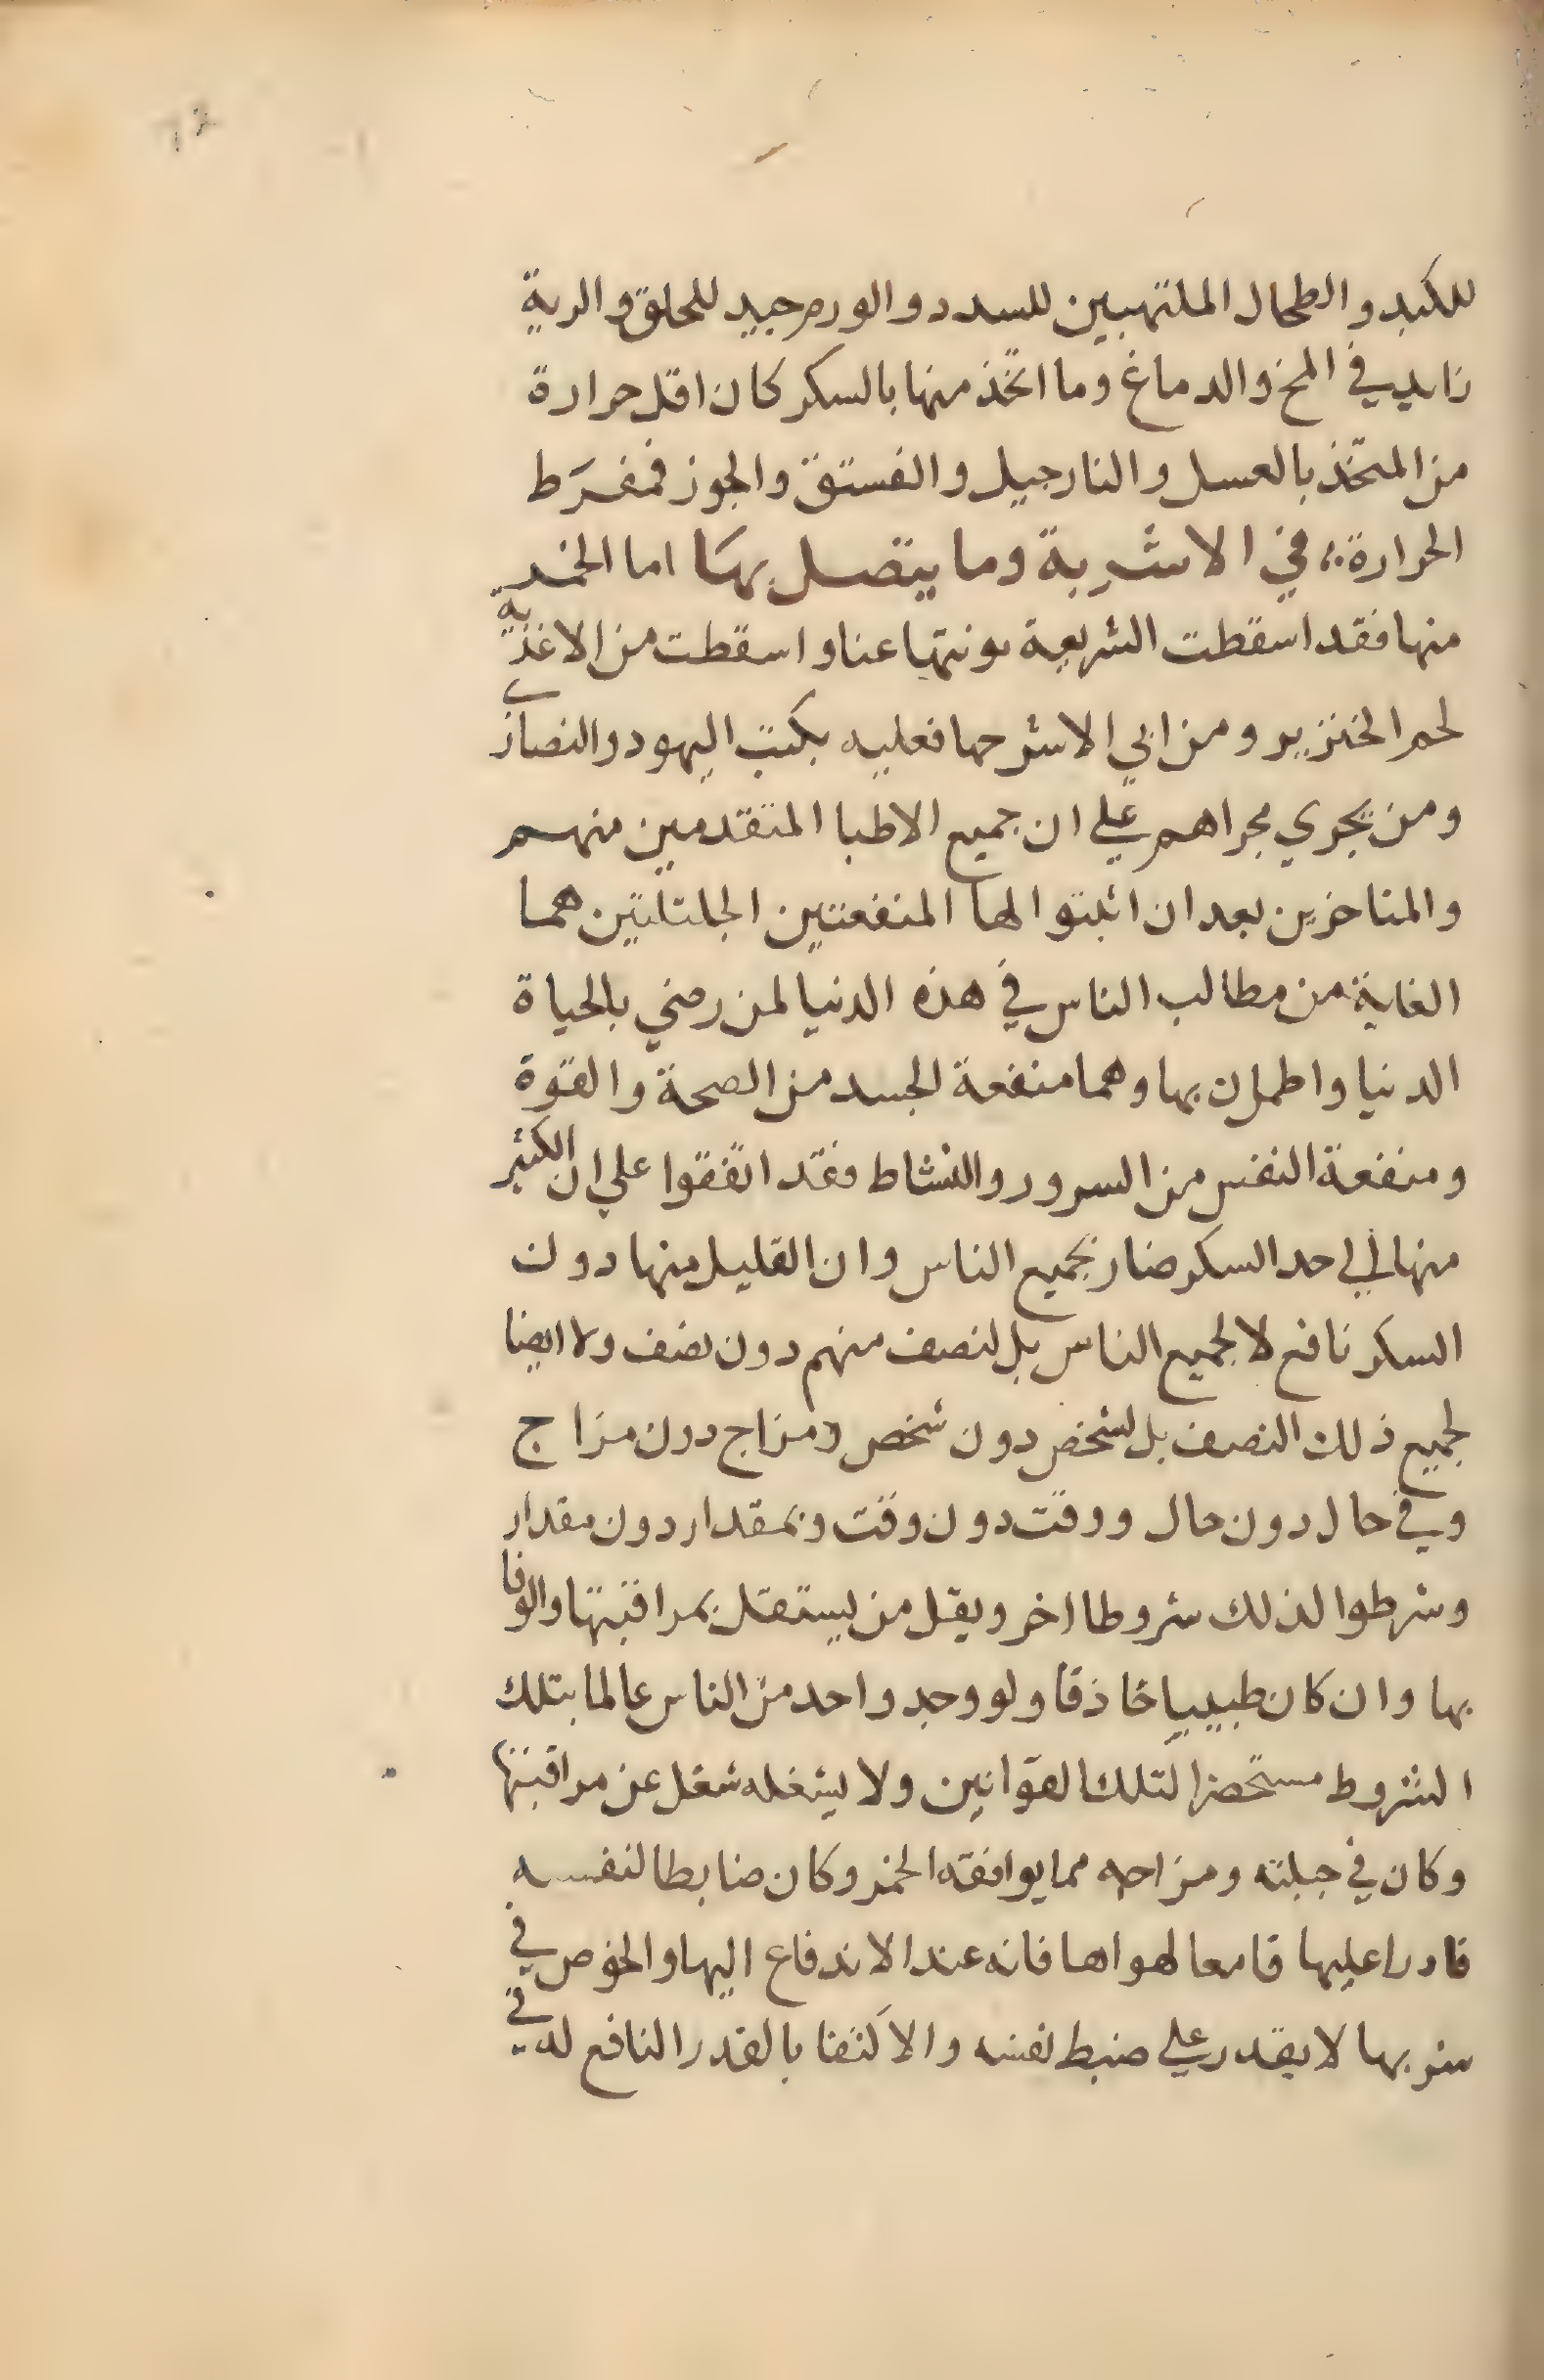 للكبد والطحال الملتهبين للسدد والورم جيد للحلق والرية
زايد في المخ والدماغ وما اتخذ منها بالسكر كان اقل حرارة
من المتخذ بالعسل والنارجيل والفستق والجوز فمفرَط
الحرارة في الاشربة وما يتصل بهَا اما الخمر
منها فقد اسقطت الشريعة مونتها عنا واسقطت من الاغذية
لحم الخنزير ومن ابي الا شرحها فعليه بكتب اليهود والنصارى
ومن يجري مجراهم علي ان جميع الاطبا المتقدمين منهم
والمتاخرين بعد ان اثبتوا لها المنفعتين الجلتلتين هما
الغاية من مطالب الناس في هذه الدنيا لمن رضي بالحياة
الدنيا واطمان بها وهما منفعة الجسد من الصحة والقوة
ومنفعة النفس من السرور والنشاط فقد اتفقوا علي ان الكثير
منها الي احد السكر ضار بجميع الناس وان القليل منها دون
السكر نافع لا لجميع الناس بل لنصف منهم دون نصف ولا ايضا
لجميع ذلك النصف بل لشخص دون شخص ومزاج دون مزاج
وفي حال دون حال ووقت دون وقت وبمقدار دون مقدار
وشرطوا لذلك شروطا اخر ويقل من يستقل بمراقبتها والوفا
بها وان كان طبيبا حاذقا ولو وجد واحد من الناس عالما بتلك
الشروط مستحضرا لتلك القوانين ولا يشغله شغل عن مراقبتها
وكان في جبلته ومزاجه مما يوافقه الخمر وكان ضابطا لنفسه
قادرا عليها قامعا لهواها فانه عند الاندفاع اليها والخوض في
شربها لا يقدر علي ضبط نفسه والاكتفا بالقدر النافع له في